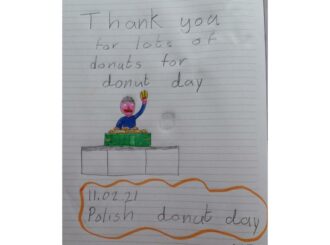 Thank you
for lots of
donuts for
donut day
11.02.21
Polish donut day